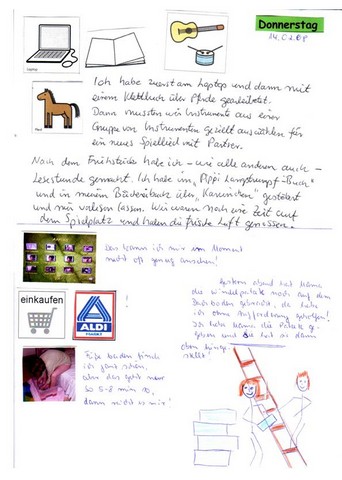 Donnerstag
Ich habe zuerst am Laptop und dann mit
einem Klettbuch über Pferde gearbeitet.
Dann mussten wir Instrumente aus einer
Gruppe von Instrumenten gezielt auswählen für
ein neues Spiellied mit Partner.
Nach dem Frühstück habe ich - wie alle anderen auch -
Lesestunde gemacht. Ich habe in "Pippi Langstrumpf-Buch"
und in meinem Bücherbuch über "Kaninchen" gestöbert
und mir vorlesen lassen. Wir waren noch eine Zeit auf
dem Spielplatz und haben die frische Luft genossen.
Das kann ich mir im Moment
nicht oft genug anschauen!
einkaufen
ALDI
MARKT
!
Gestern abend hat Mama
die Windelpakete noch auf den
Dachboden gebracht, da habe
ich ohne Aufforderung geholfen!
Ich habe Mama die Pakete ge-
geben und sie hat sie dann
oben hingestellt!
Füße baden finde
ich ganz schön,
aber das geht nur
so 5-8 min
dann reicht es mir!